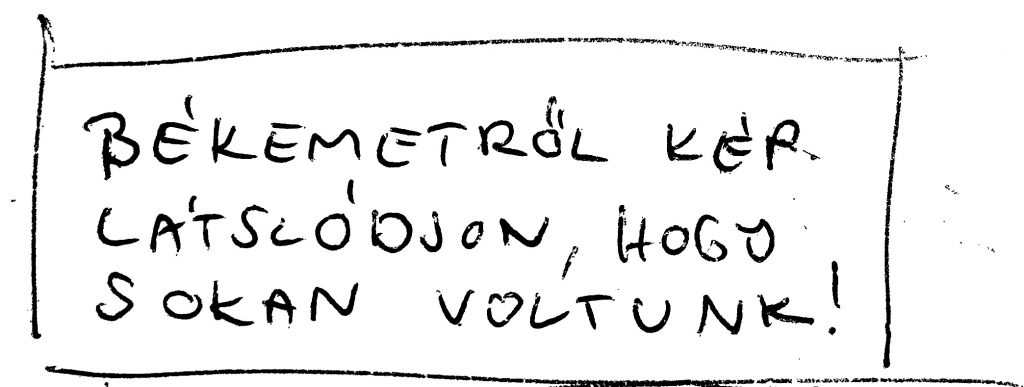 BÉKEMETRŐL KÉP
LÁTSLÓDJON, HOGY
SOKAN VOLTUNK!